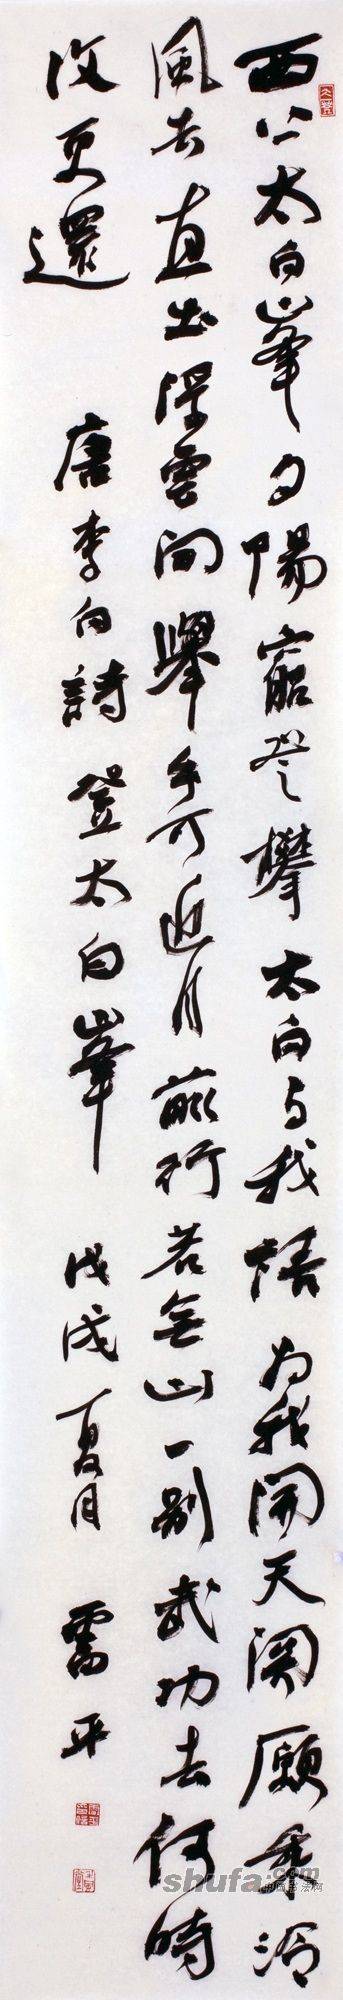 西上太白峯夕陽窮登攀太白與我語為我開天關願乘泠
風去直出浮雲間舉手可近月前行若無山一別武功去何時
復更還 唐李白詩登太白峯 戊戌夏月 雷平
shufa.com
中国书法网